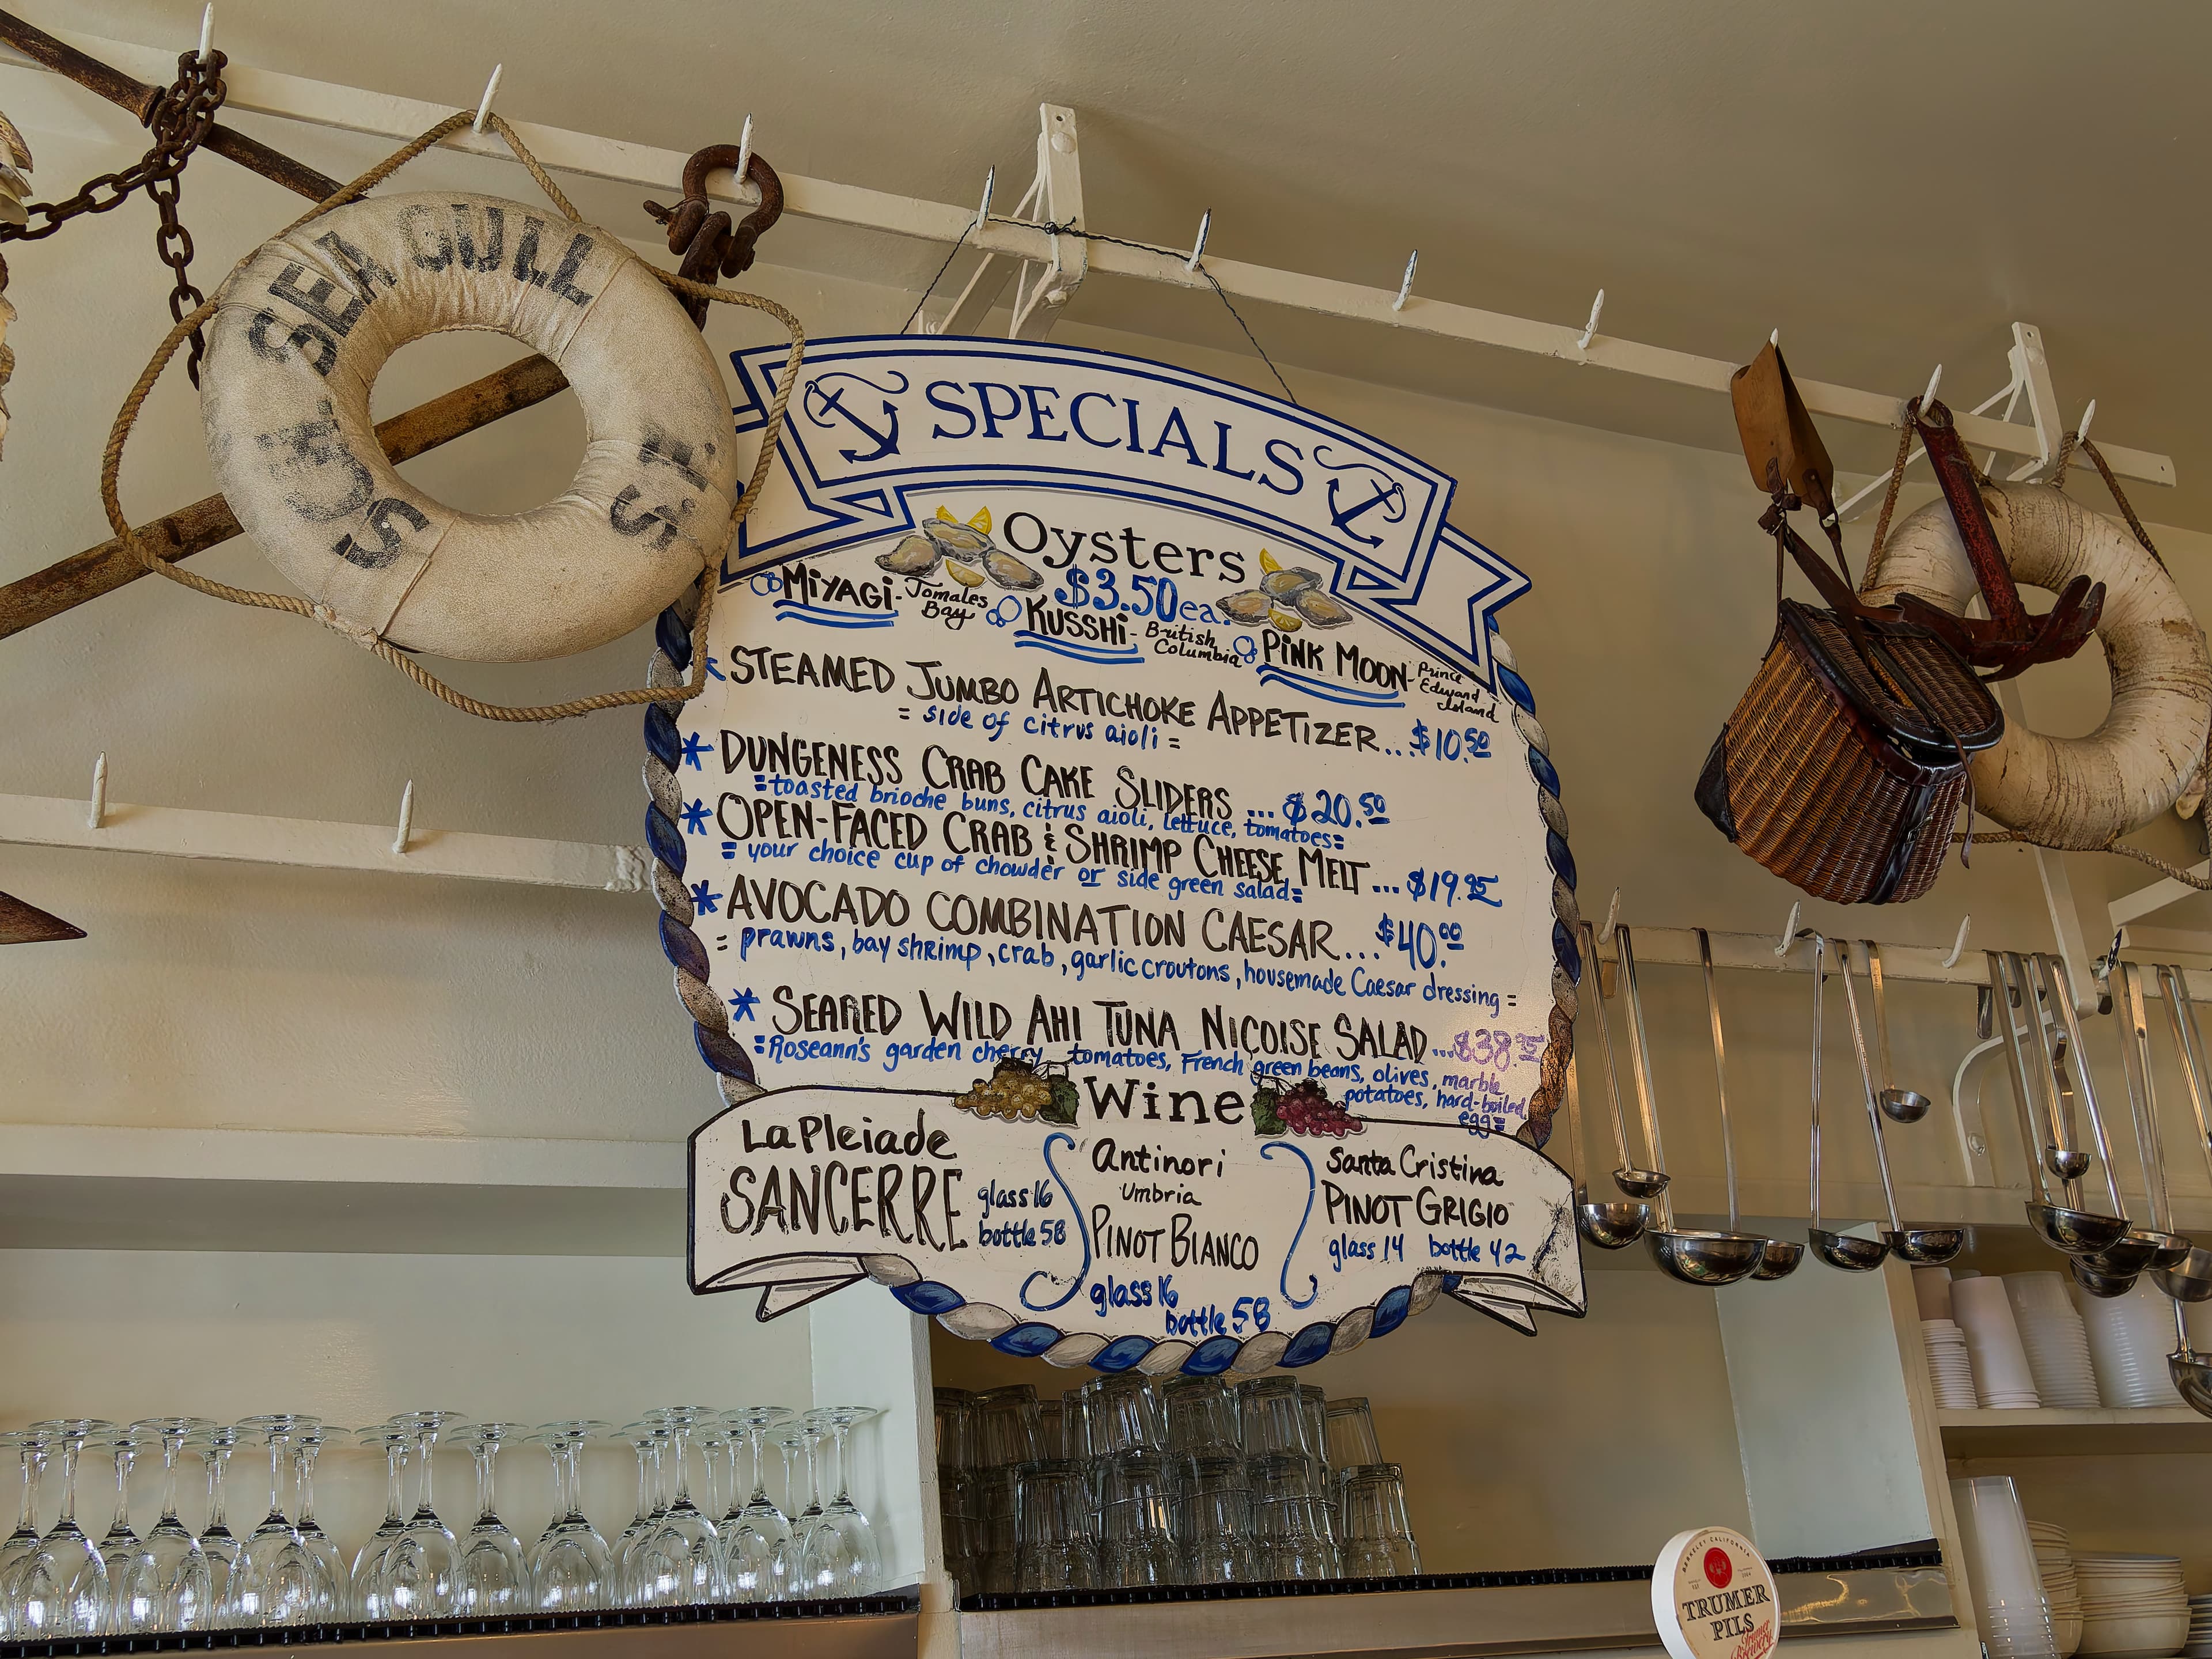 SEA GULL
SPECIALS
Oysters
$3.50 ea.
MIYAGI - Tomales Bay
KUSSHI - British Columbia
PINK MOON - Prince Edward Island
STEAMED JUMBO ARTICHOKE APPETIZER... $10.50
= side of citrus aioli =
* DUNGENESS CRAB CAKE SLIDERS ... $20.50
= toasted brioche buns, citrus aioli, lettuce, tomatoes =
* OPEN-FACED CRAB & SHRIMP CHEESE MELT ... $19.95
= your choice cup of chowder or side green salad =
* AVOCADO COMBINATION CAESAR... $40.00
= prawns, bay shrimp, crab, garlic croutons, housemade Caesar dressing =
* SEARED WILD AHI TUNA NIÇOISE SALAD ... $38.95
= Roseann's garden cherry tomatoes, French green beans, olives, marble
potatoes, hard-boiled
egg =
Wine
La Pleiade
SANCERRE
glass 16
bottle 58
Antinori
Umbria
PINOT BIANCO
glass 16
bottle 58
Santa Cristina
PINOT GRIGIO
glass 14 bottle 42
BERKELEY CALIFORNIA
TRUMER
PILS